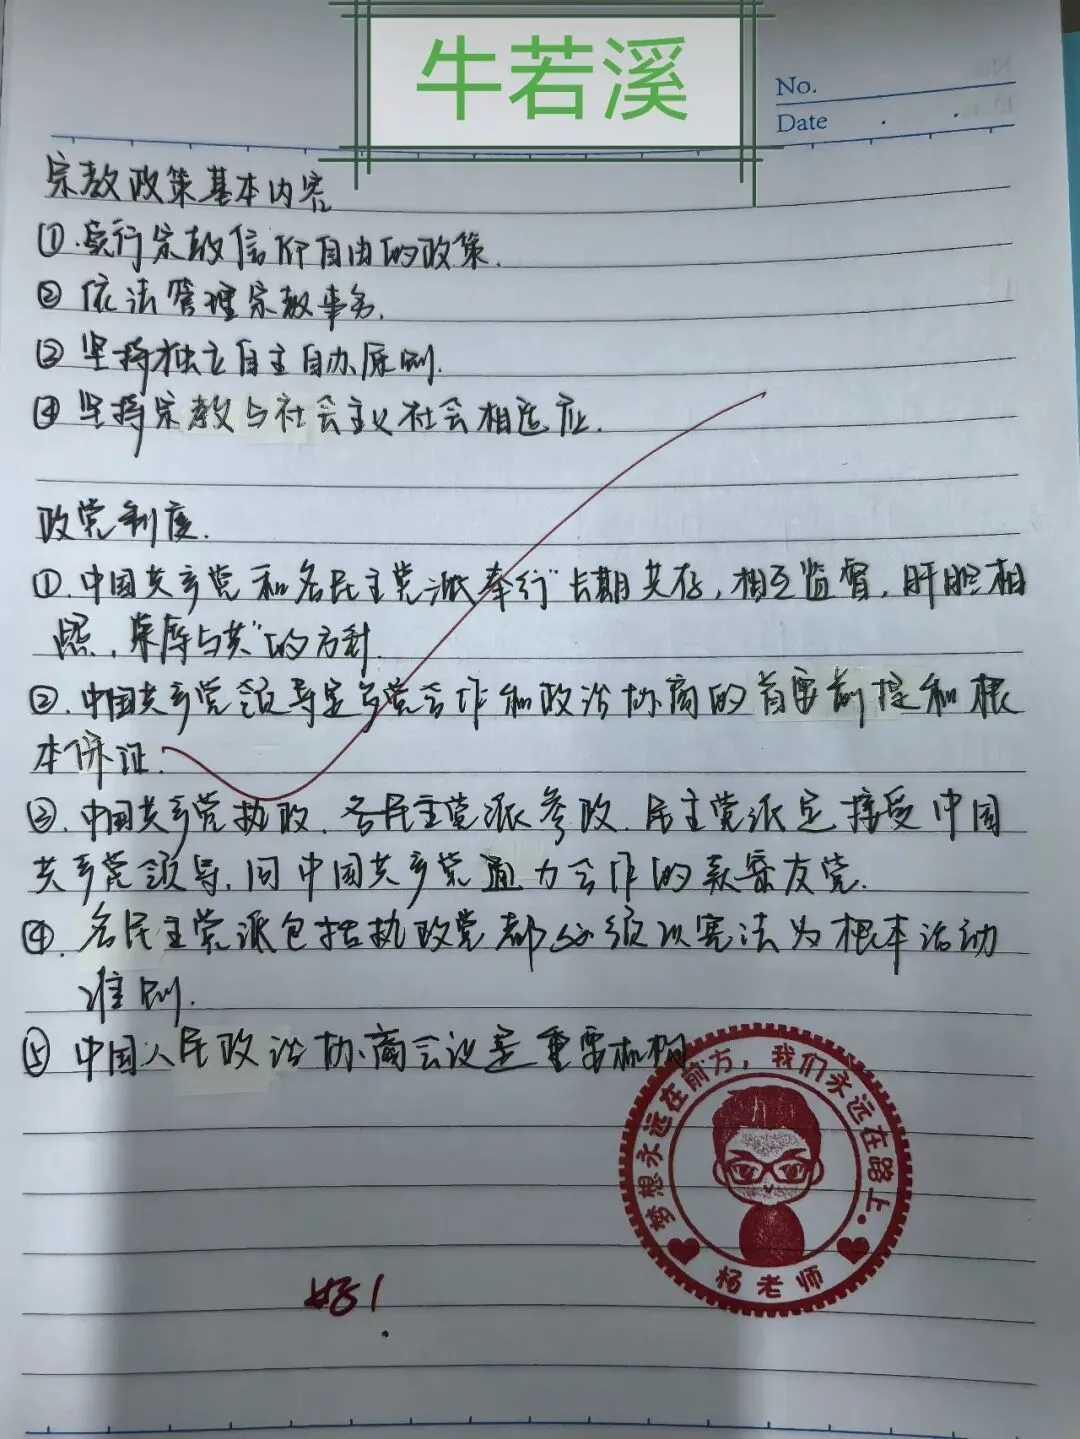 牛若溪
No.
Date
宗教政策基本内容
①.实行宗教信仰自由的政策.
②依法管理宗教事务.
③坚持独立自主自办原则.
④坚持宗教与社会主义社会相适应.
政党制度.
①.中国共产党和各民主党派奉行"长期共存,相互监督,肝胆相
照,荣辱与共"的方针.
②.中国共产党领导是多党合作和政治协商的首要前提和根
本保证.
③.中国共产党执政.各民主党派参政.民主党派是接受中国
共产党领导,同中国共产党通力合作的亲密友党.
④.各民主党派包括执政党都必须以宪法为根本活动
准则.
⑤中国人民政治协商会议是重要机构
梦想永远在前方,我们永远在路上.
杨老师
好!